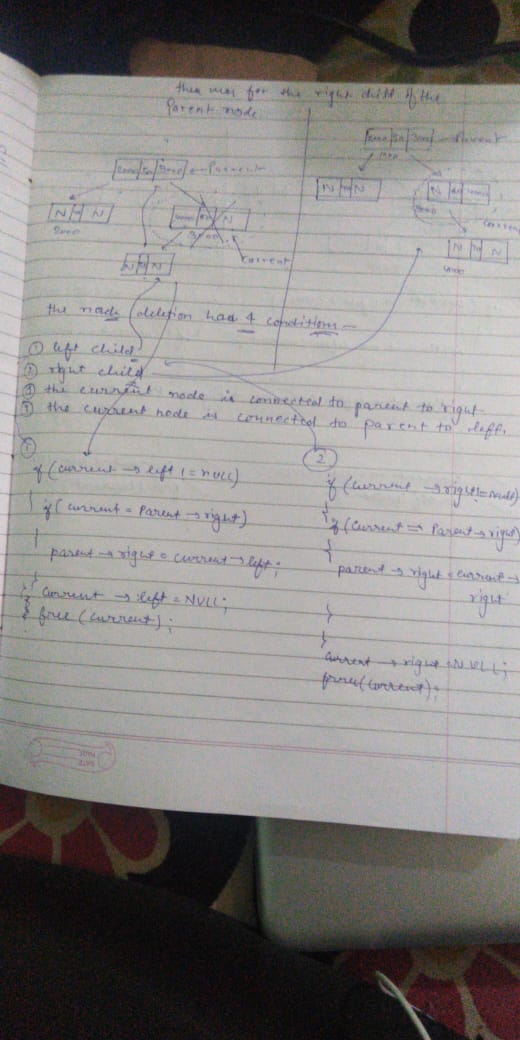 for the right child of the
Parent node
Parent
Parent
N N
N N
2000
N
N
current
N N
N N
current
the node deletion had 4 conditions -
① left child
② right child
③ the current node is connected to parent to right
④ the current node is connected to parent to left.
①
②
if (current → left != NULL)
{ if (current = Parent → right)
{
parent → right = current → left;
}
current → left = NULL;
} free (current);
if (current → right != NULL)
{
if (current == Parent → right)
{
parent → right = current →
right
}
}
current → right = NULL;
free(current);
DATE
PAGE